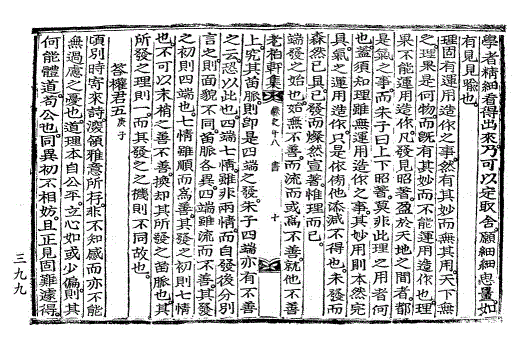 學者精細看得出來乃可以定取舍願細細思量如
有見見喩也
理固有運用造作之事然有其妙而無其用天下無
之理果是何物而旣有其妙而不能運用造作也理
果不能運用造作凡發見昭著盈於天地之間者都
是氣之事而朱子曰上下昭著莫非此理之用者何
也蓋須知理雖無運用造作之事其妙用則本然完
具氣之運用造作只是依傍他添減不得也未發而
森然已具已發而燦然宣著惟理而已
端發之始也始無不善而流而或爲不善就他不善
老柏軒集 卷之十八 書 十
上究其苗脈則卽是四端之發朱子四端亦有不善
之云恐以此也四端七情雖非兩情而自發後分別
言之則面貌不同苗脈各異四端雖流而不善其發
之初則四端也七情雖順而爲善其發之初則七情
也不可以末梢之善不善換却其所發之苗脈也其
所發之理則一而其發之之機則不同故也
答權君五 庚子
頃別時寄來詩深領雅意所存非不知感而亦不能
無過慮之憂也道理本自公平立心如或少偏則其
何能體道苟公也同異初不相妨且正見固難遽得
三九九